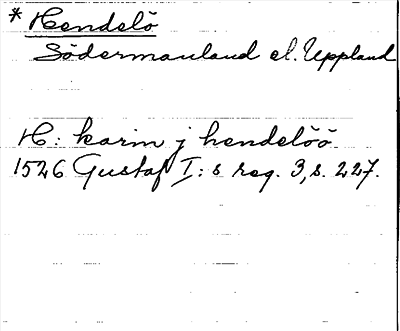 * Hendelö
Södermanland el. Uppland
H: karin j hendelöö
1526 Gustaf I:s reg. 3, s. 227.